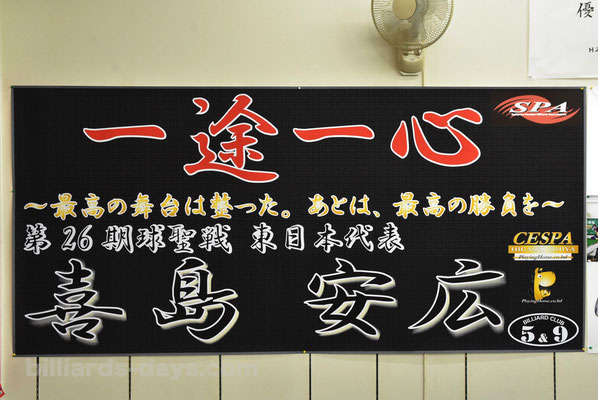 優
一途一心
SPA
～最高の舞台は整った。あとは、最高の勝負を～
第26期球聖戦 東日本代表
CESPA
HIGASHIGUYA
PlayingHouse.co.ltd
PlayingHouse.co.ltd
喜島 安広
BILLIARD CLUB
5&9
billiards-days.com